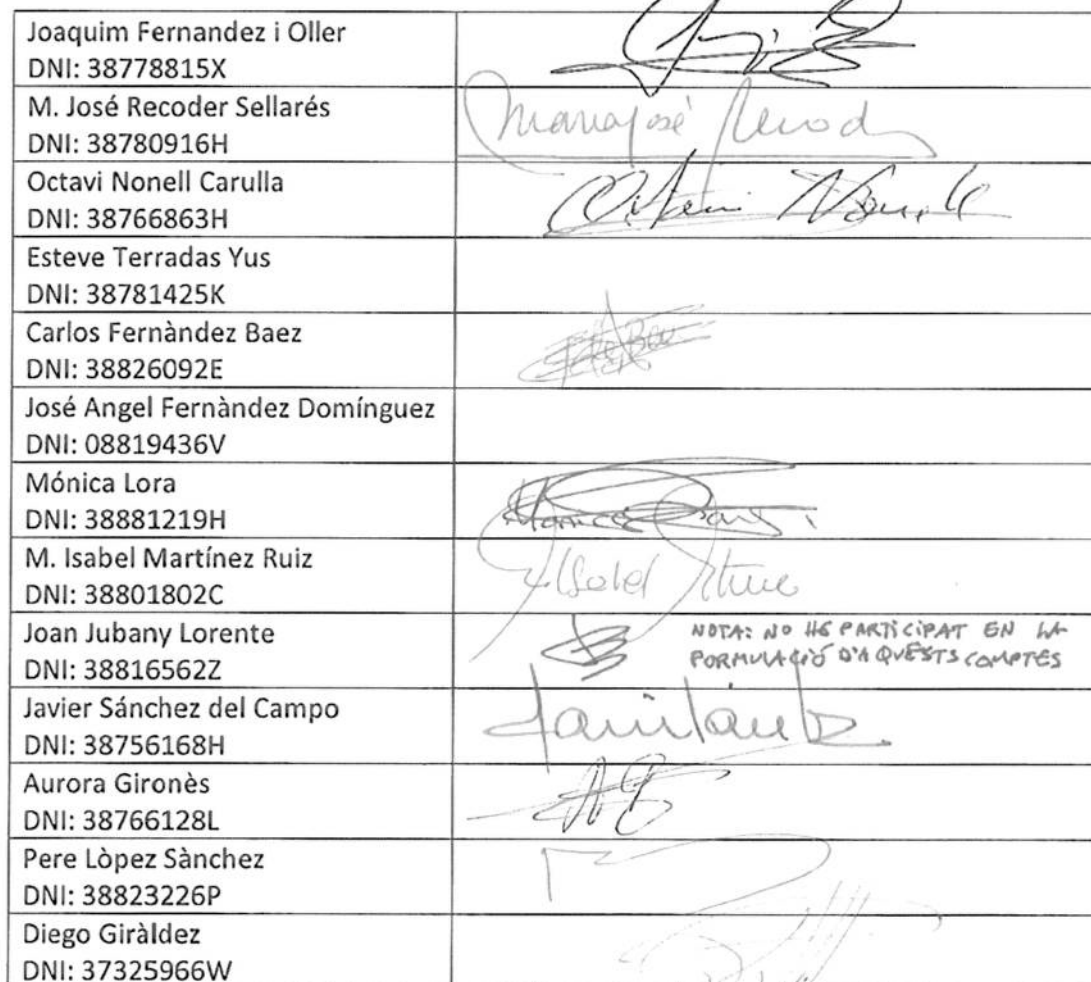 Joaquim Fernandez i Oller
DNI: 38778815X
M. José Recoder Sellarés
DNI: 38780916H
Octavi Nonell Carulla
DNI: 38766863H
Esteve Terradas Yus
DNI: 38781425K
Carlos Fernàndez Baez
DNI: 38826092E
José Angel Fernàndez Domínguez
DNI: 08819436V
Mónica Lora
DNI: 38881219H
M. Isabel Martínez Ruiz
DNI: 38801802C
Joan Jubany Lorente
DNI: 38816562Z
NOTA: NO HE PARTICIPAT EN LA
FORMULACIÓ D'AQUESTS COMPTES
Javier Sánchez del Campo
DNI: 38756168H
Aurora Gironès
DNI: 38766128L
Pere Lòpez Sànchez
DNI: 38823226P
Diego Giràldez
DNI: 37325966W